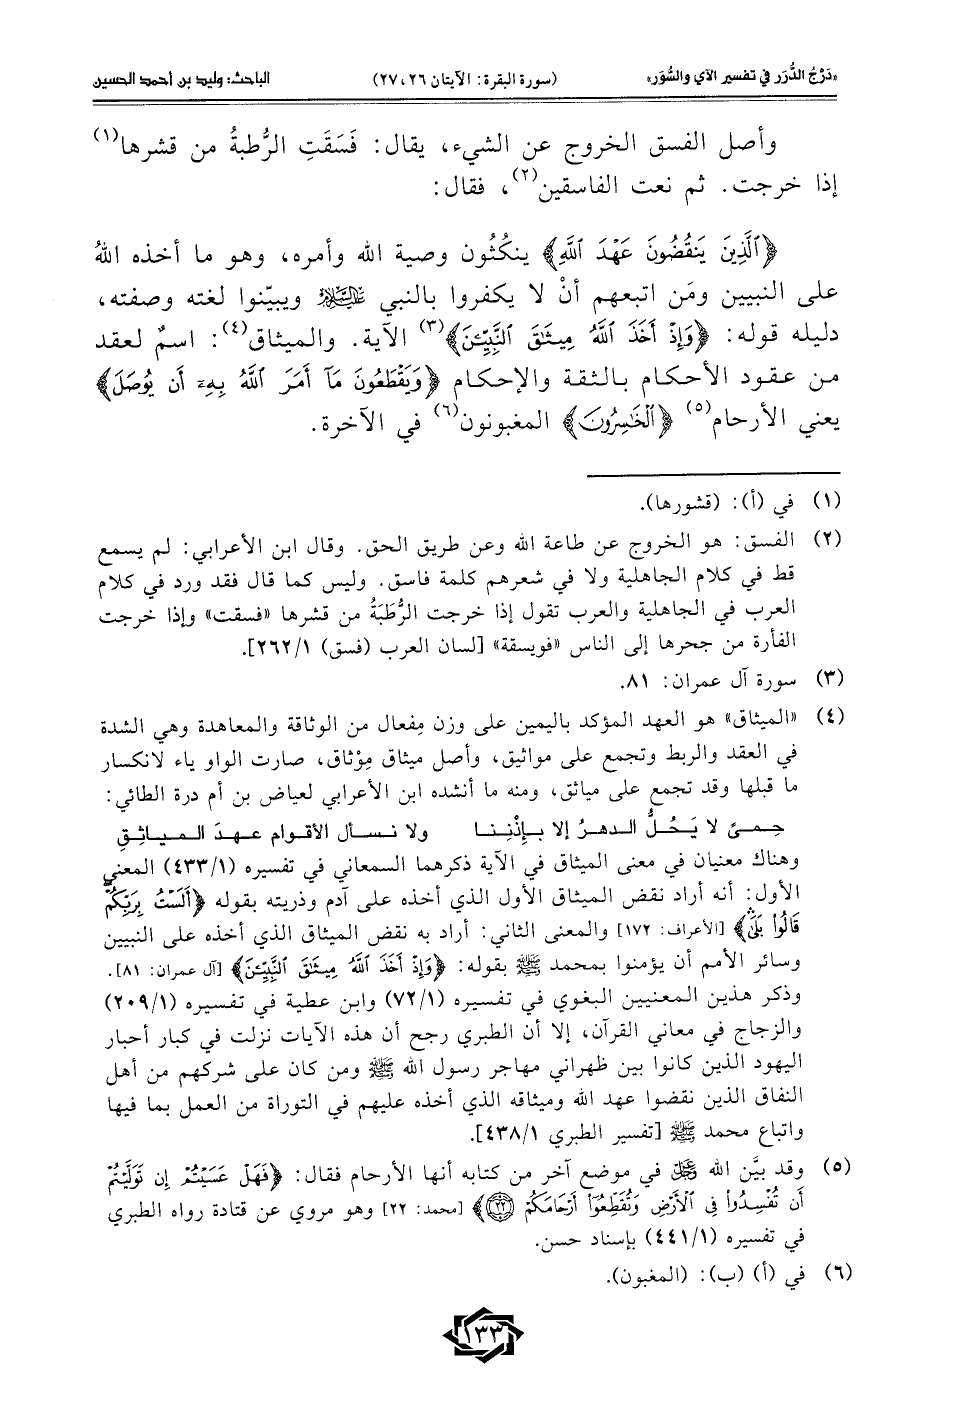 «دَرْجُ الدُّرَر في تفسير الآي والسُّوَر» (سورة البقرة: الآيتان ٢٦، ٢٧) الباحث: وليد بن أحمد الحسين
وأصل الفسق الخروج عن الشيء، يقال: فَسَقَتِ الرُّطبةُ من قشرها(١)
إذا خرجت. ثم نعت الفاسقين(٢)، فقال:
﴿ٱلَّذِينَ يَنقُضُونَ عَهْدَ ٱللَّهِ﴾ ينكُثُون وصية الله وأمره، وهو ما أخذه اللهُ
على النبيين ومَن اتبعهم أنْ لا يكفروا بالنبي عليه السلام ويبيّنوا لغته وصفته،
دليله قوله: ﴿وَإِذْ أَخَذَ ٱللَّهُ مِيثَٰقَ ٱلنَّبِيِّـۧنَ﴾(٣) الآية. والميثاق(٤): اسمٌ لعقد
من عقود الأحكام بالثقة والإحكام ﴿وَيَقْطَعُونَ مَآ أَمَرَ ٱللَّهُ بِهِۦٓ أَن يُوصَلَ﴾
يعني الأرحام(٥) ﴿ٱلْخَٰسِرُونَ﴾ المغبونون(٦) في الآخرة.
(١) في (أ): (قشورها).
(٢) الفسق: هو الخروج عن طاعة الله وعن طريق الحق. وقال ابن الأعرابي: لم يسمع
قط في كلام الجاهلية ولا في شعرهم كلمة فاسق. وليس كما قال فقد ورد في كلام
العرب في الجاهلية والعرب تقول إذا خرجت الرُّطَبَةُ من قشرها «فسقت» وإذا خرجت
الفأرة من جحرها إلى الناس «فويسقة» [لسان العرب (فسق) ٢٦٢/١].
(٣) سورة آل عمران: ٨١.
(٤) «الميثاق» هو العهد المؤكد باليمين على وزن مِفعال من الوثاقة والمعاهدة وهي الشدة
في العقد والربط وتجمع على مواثيق، وأصل ميثاق مِوْثاق، صارت الواو ياء لانكسار
ما قبلها وقد تجمع على مياثق، ومنه ما أنشده ابن الأعرابي لعياض بن أم درة الطائي:
حِمىً لا يَحُلُّ الدهرُ إلا بإِذْنِنا ولا نسأل الأقوام عهدَ المياثِقِ
وهناك معنيان في معنى الميثاق في الآية ذكرهما السمعاني في تفسيره (٤٣٣/١) المعنى
الأول: أنه أراد نقض الميثاق الأول الذي أخذه على آدم وذريته بقوله ﴿أَلَسْتُ بِرَبِّكُمْ
قَالُوا۟ بَلَىٰ﴾ [الأعراف: ١٧٢] والمعنى الثاني: أراد به نقض الميثاق الذي أخذه على النبيين
وسائر الأمم أن يؤمنوا بمحمد ﷺ بقوله: ﴿وَإِذْ أَخَذَ ٱللَّهُ مِيثَٰقَ ٱلنَّبِيِّـۧنَ﴾ [آل عمران: ٨١].
وذكر هذين المعنيين البغوي في تفسيره (٧٢/١) وابن عطية في تفسيره (٢٠٩/١)
والزجاج في معاني القرآن، إلا أن الطبري رجح أن هذه الآيات نزلت في كبار أحبار
اليهود الذين كانوا بين ظهراني مهاجر رسول الله ﷺ ومن كان على شركهم من أهل
النفاق الذين نقضوا عهد الله وميثاقه الذي أخذه عليهم في التوراة من العمل بما فيها
واتباع محمد ﷺ [تفسير الطبري ٤٣٨/١].
(٥) وقد بيَّن الله ﷻ في موضع آخر من كتابه أنها الأرحام فقال: ﴿فَهَلْ عَسَيْتُمْ إِن تَوَلَّيْتُمْ
أَن تُفْسِدُوا۟ فِى ٱلْأَرْضِ وَتُقَطِّعُوٓا۟ أَرْحَامَكُمْ ۝٢٢﴾ [محمد: ٢٢] وهو مروي عن قتادة رواه الطبري
في تفسيره (٤٤١/١) بإسناد حسن.
(٦) في (أ) (ب): (المغبون).
١٣٣